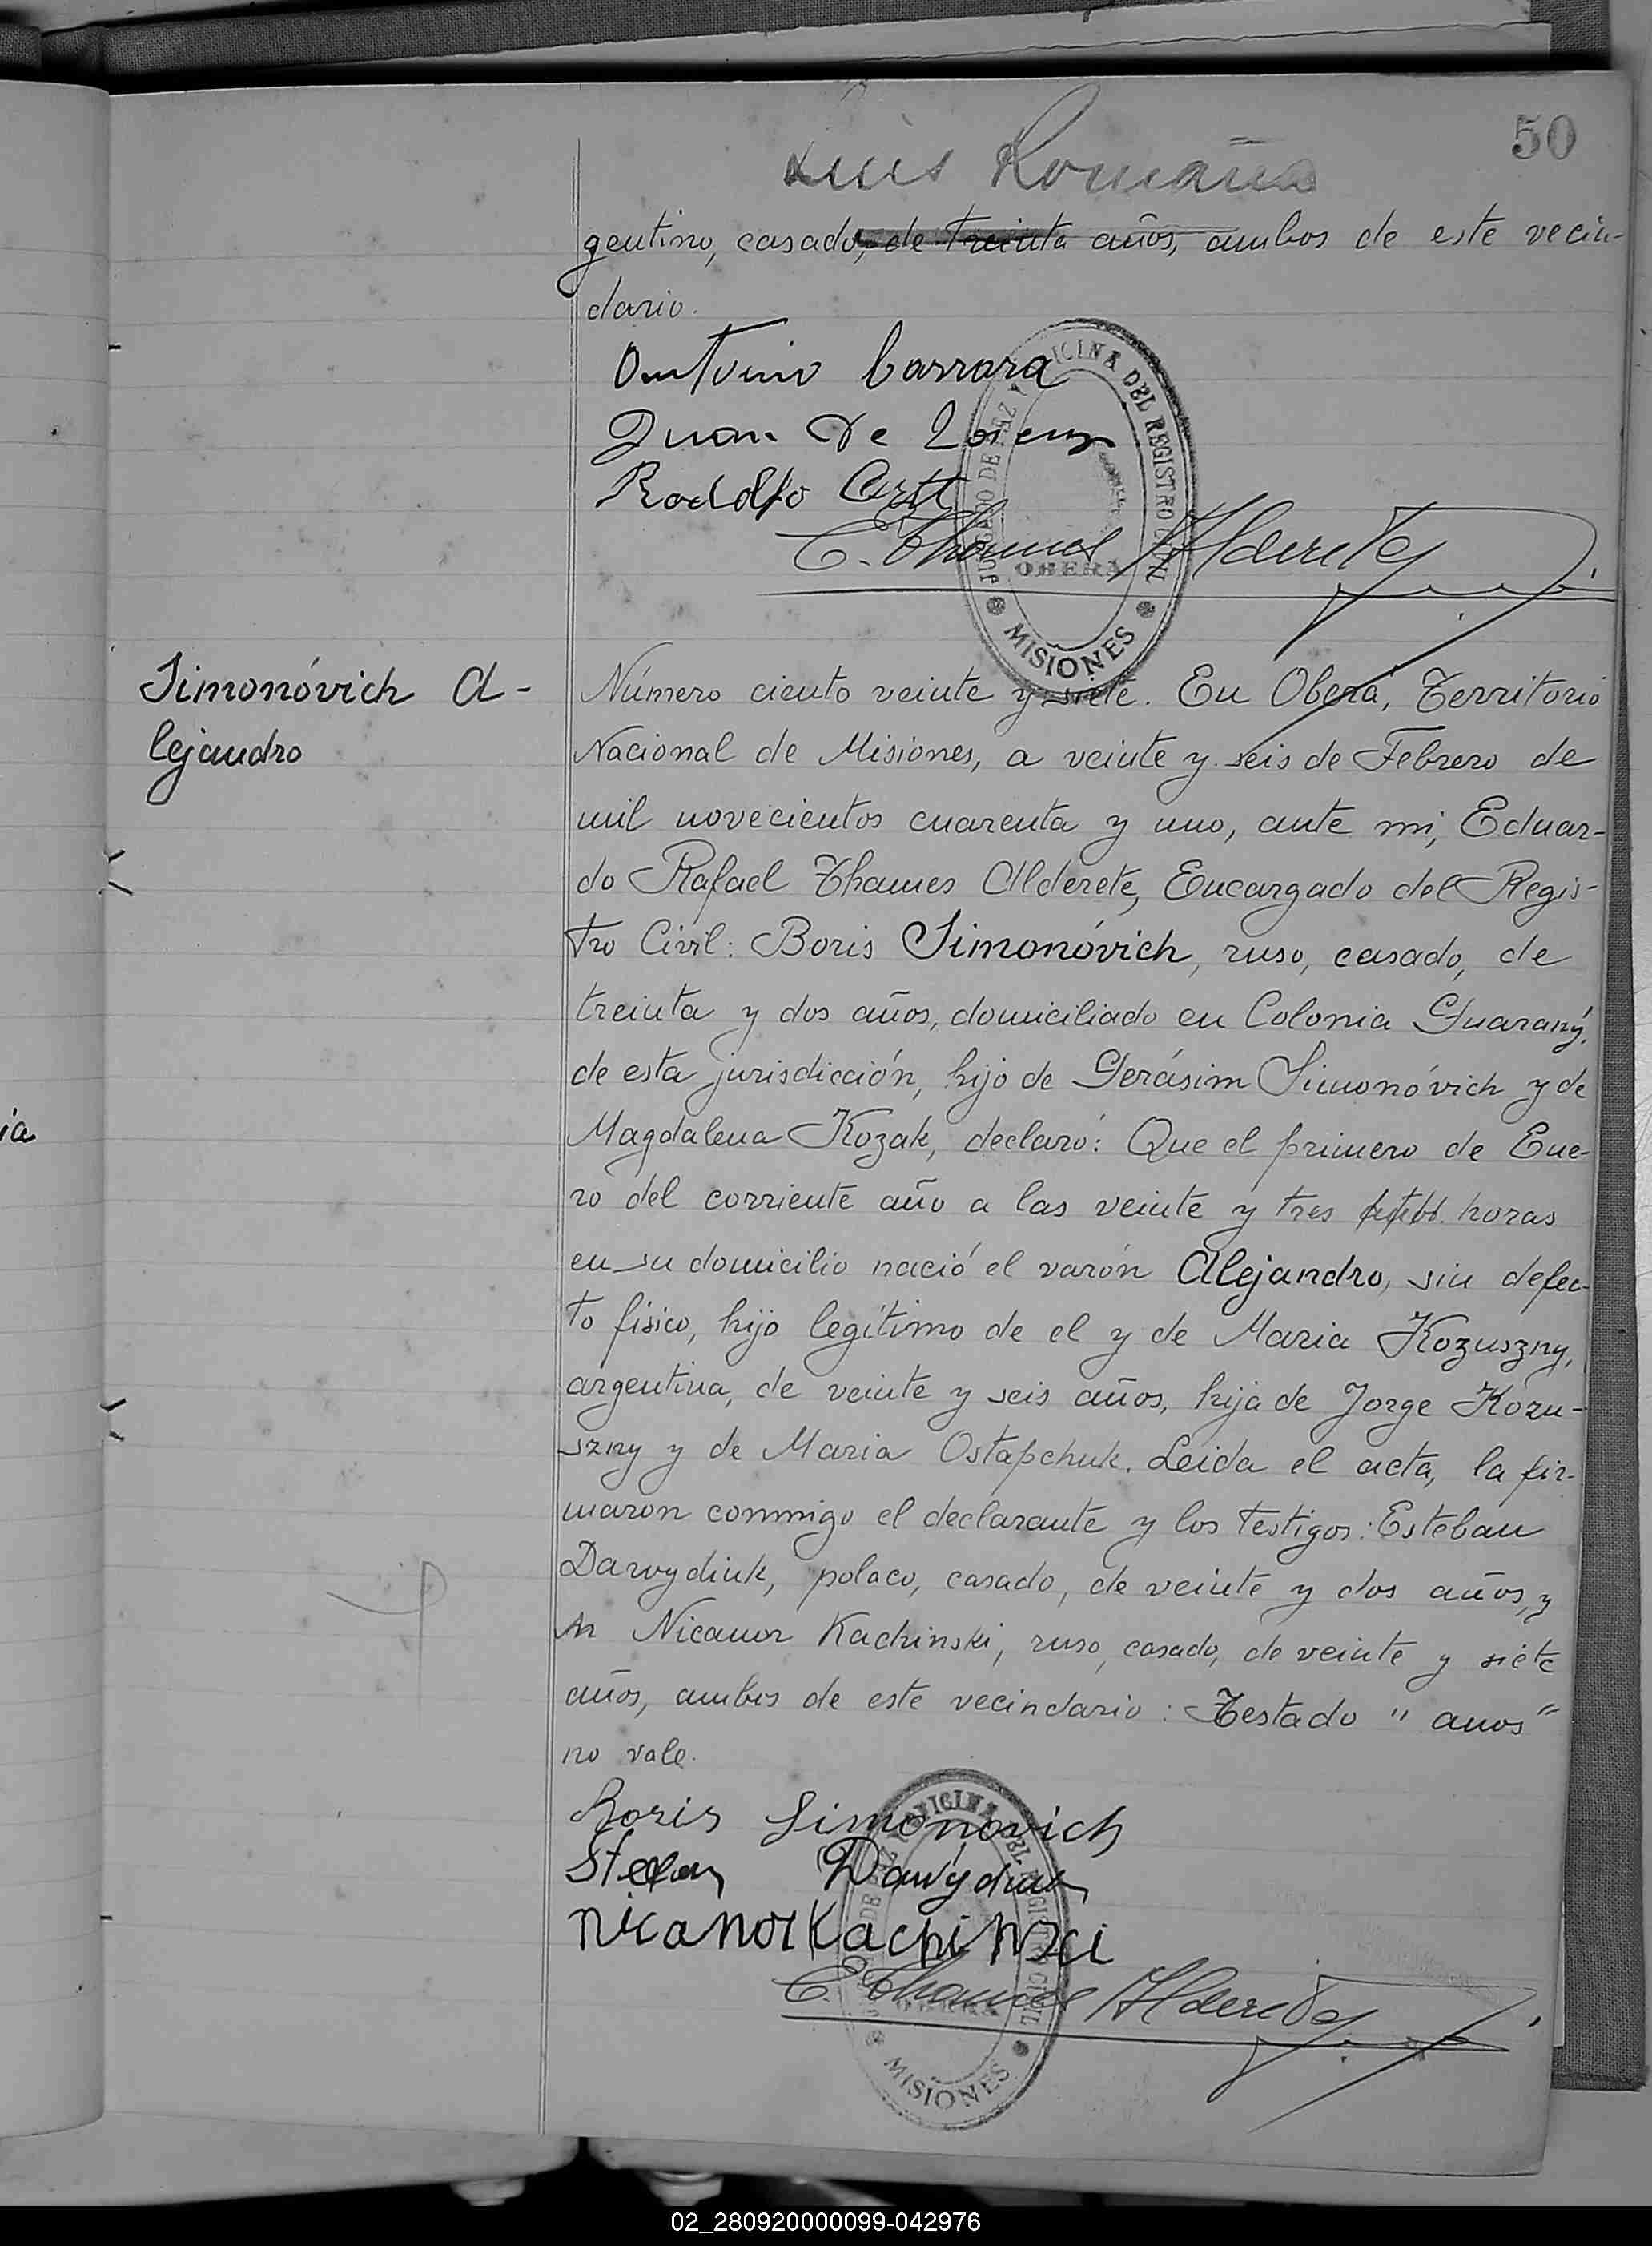 50
Luis Romaña
gentino, casado, de treinta años, ambos de este vecin-
dario.
Antonio Carrara
Juan De
Rodolfo
E. Thames Alderete
JUZGADO DE PAZ Y OFICINA DEL REGISTRO CIVIL
OBERÁ
MISIONES
Simonóvich A-
lejandro
Número ciento veinte y siete. En Oberá, Territorio
Nacional de Misiones, a veinte y seis de Febrero de
mil novecientos cuarenta y uno, ante mi, Eduar-
do Rafael Thames Alderete, Encargado del Regis-
tro Civil: Boris Simonóvich, ruso, casado, de
treinta y dos años, domiciliado en Colonia Guarany,
de esta jurisdicción, hijo de Gerásim Simonóvich y de
Magdalena Kozak, declaró: Que el primero de Ene-
ro del corriente año a las veinte y tres horas
en su domicilio nació el varón Alejandro, sin defec-
to físico, hijo legítimo de el y de Maria Kozuszny,
argentina, de veinte y seis años, hija de Jorge Kozu-
szny y de Maria Ostapchuk. Leida el acta, la fir-
maron conmigo el declarante y los testigos: Esteban
Dawydiuk, polaco, casado, de veinte y dos años, y
Nicanor Kachinski, ruso, casado, de veinte y siete
años, ambos de este vecindario: Testado "anos"
no vale.
Boris Simonovich
Stefan Dawydiuk
nicanor Kachinzci
E. Thames Alderete
OFICINA DEL REGISTRO CIVIL
OBERÁ
MISIONES
ia
02_280920000099-042976